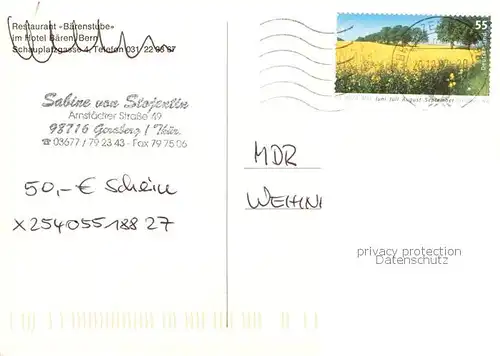 Restaurant «Bärenstube»
im Hotel Bären, Bern
Schauplatzgasse 4, Telefon 031 22 33 67
Sabine von Stojentin
Arnstädter Straße 49
98716 Geraberg / Thür.
☎ 03677 / 79 23 43 - Fax 79 75 06
50,- € Schein
X25405518827
55
Juni Juli August September
MDR
WEIHN
privacy protection
Datenschutz